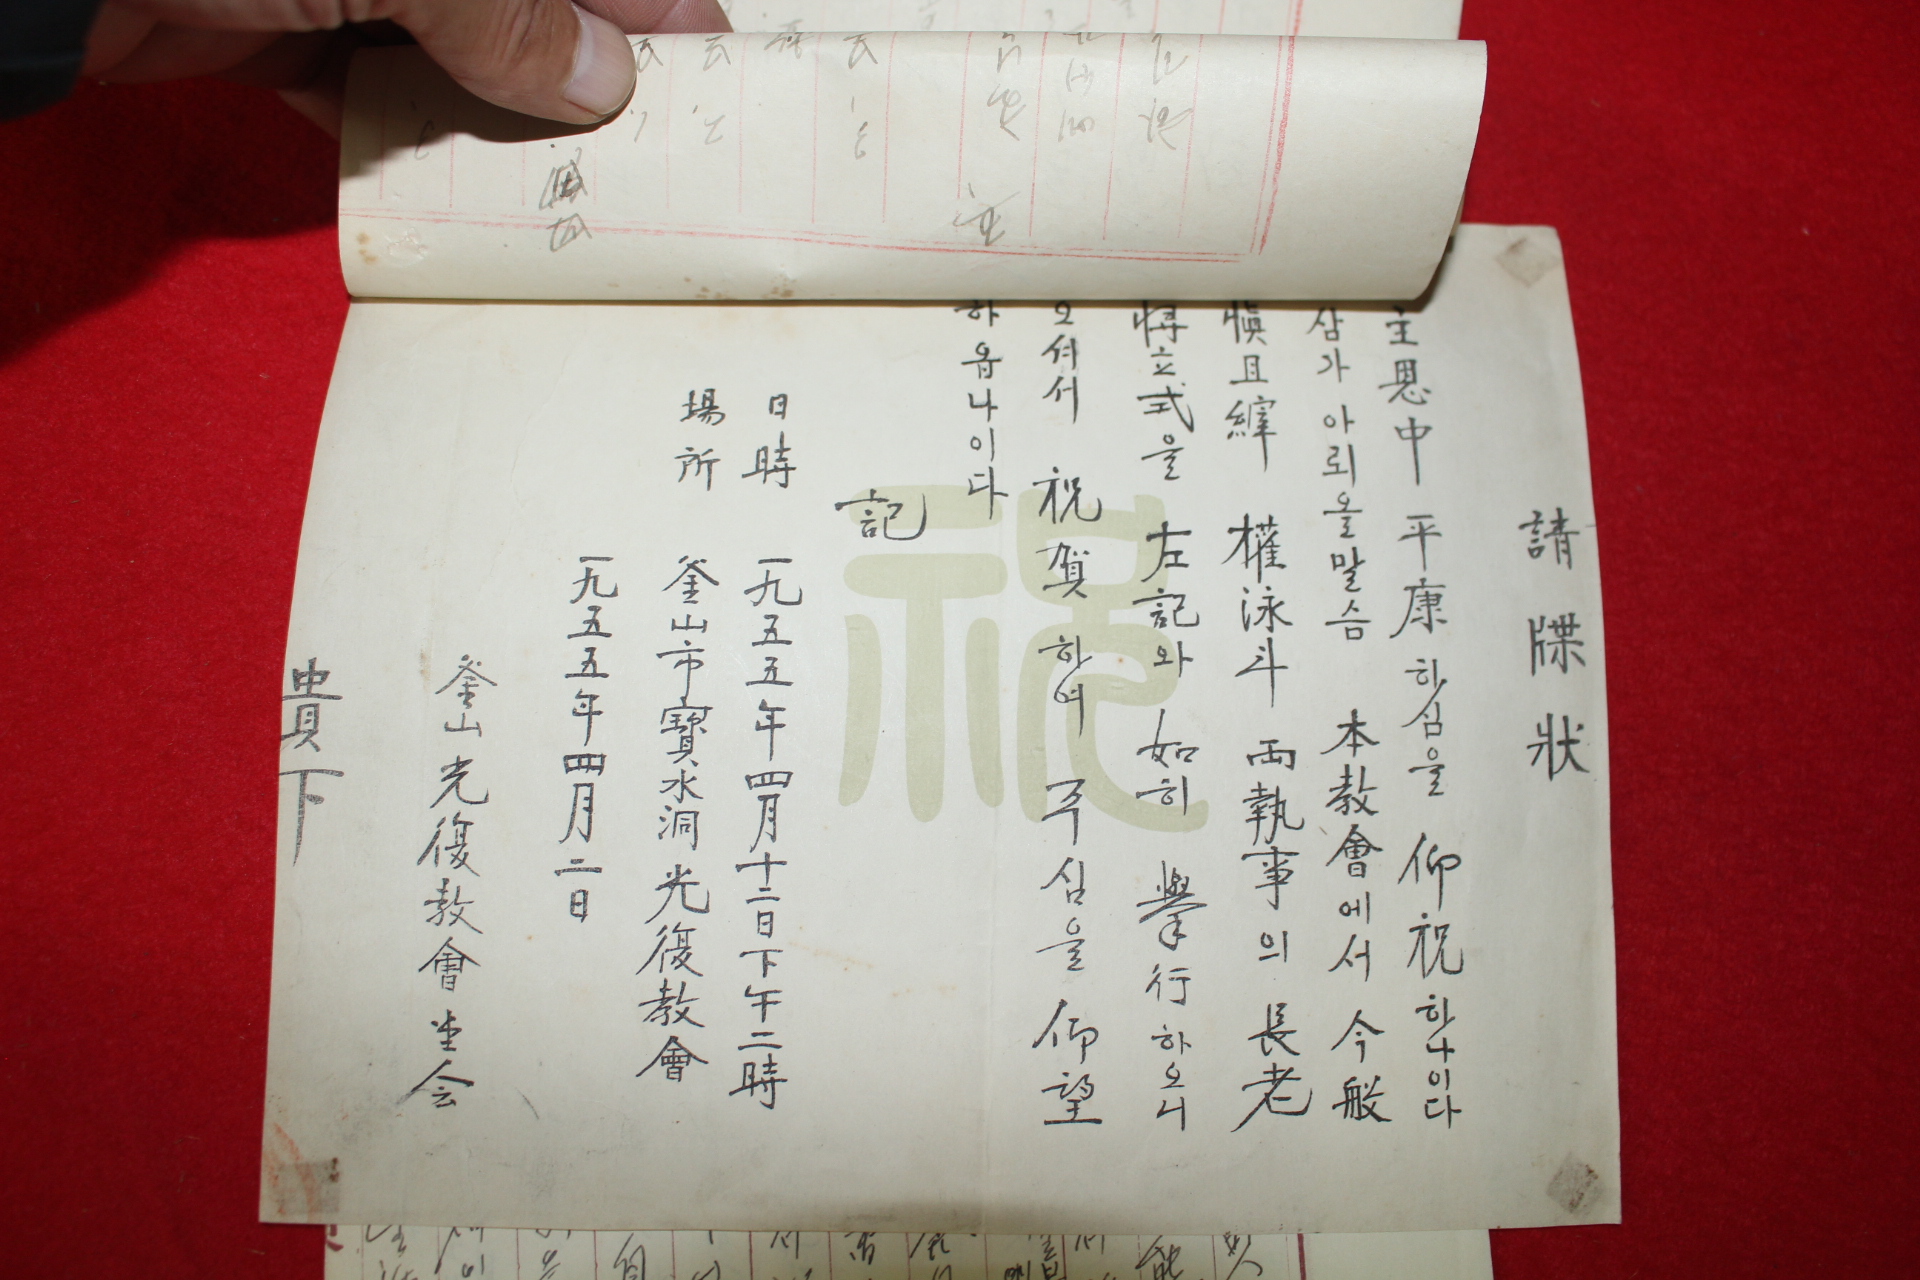 請牒狀
主恩中 平康하심을 仰祝하나이다
삼가 아뢰올말슴 本敎會에서 今般
愼且縡 權泳斗 両執事의 長老
將立式을 左記와 如히 擧行하오니
오셔서 祝賀하여 주심을 仰望
하옵나이다
記
日時 一九五五年四月十二日下午二時
場所 釜山市寶水洞光復敎會
一九五五年四月二日
釜山光復敎會堂会
貴下
祝